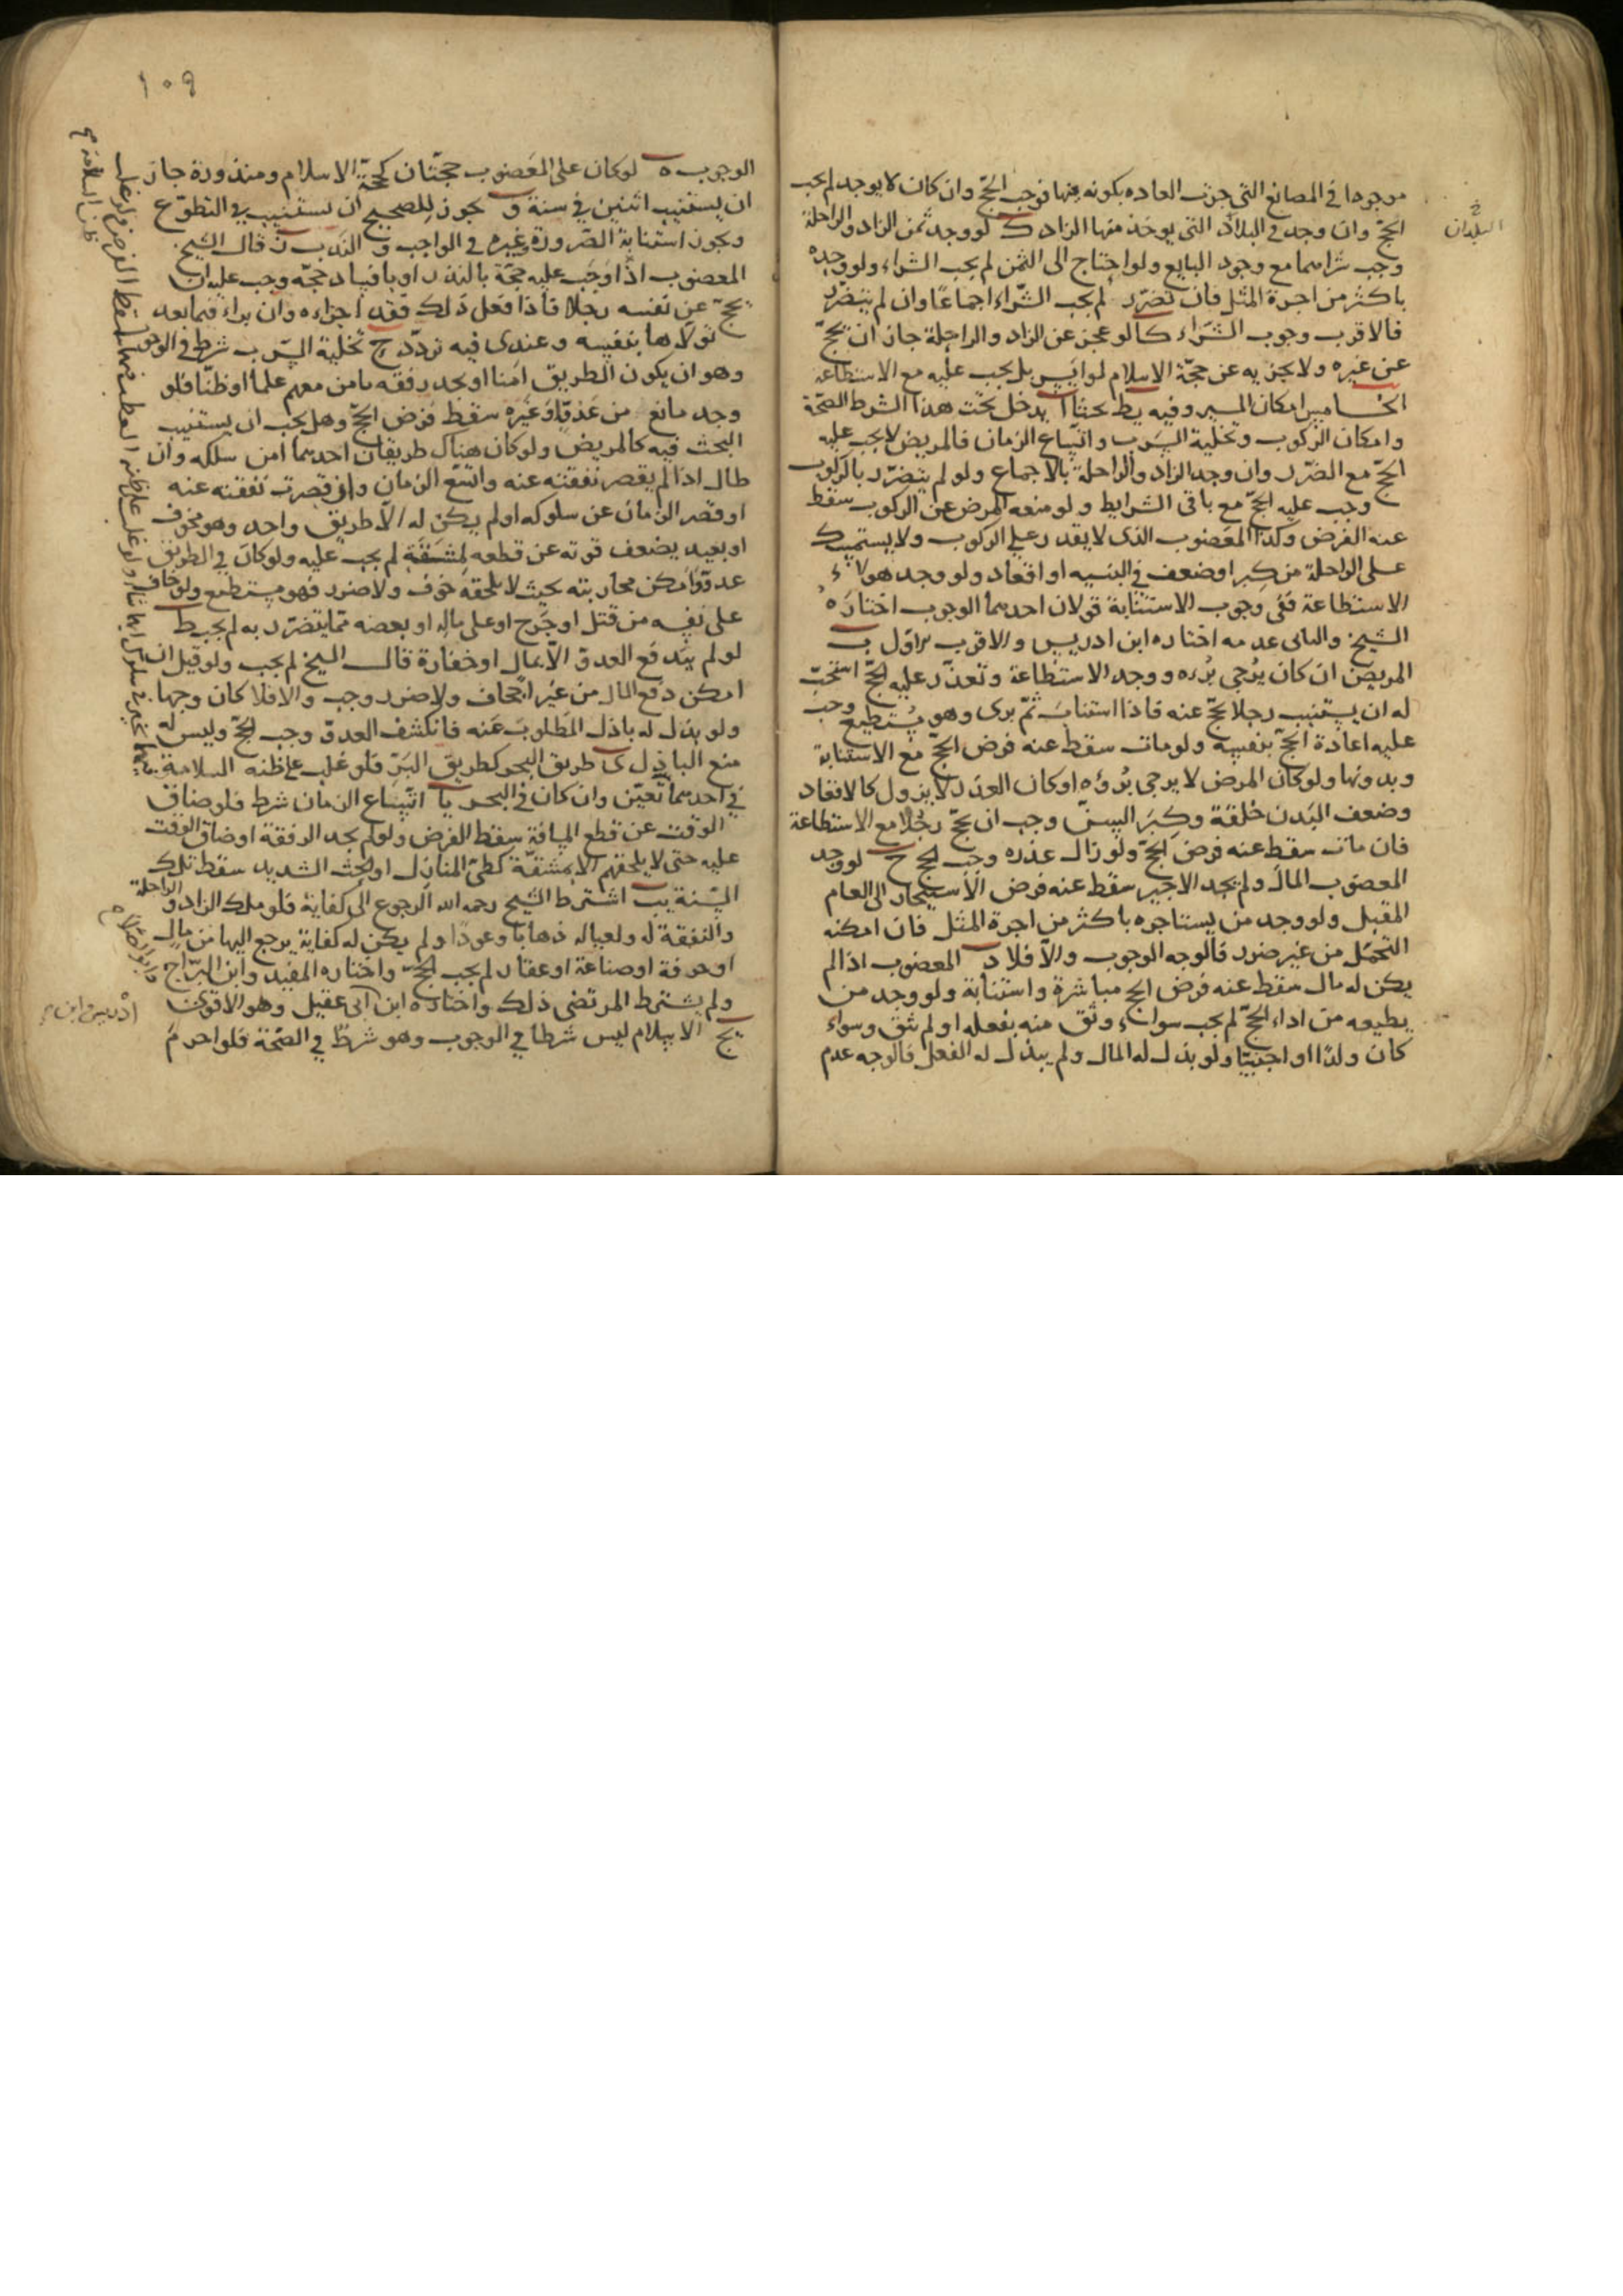 موجودا في المصانع التي جرت العادة بكونه فيها فوجب الحجّ وان كان لا يوجد لم يجب
الحجّ وان وجد في البلاد التي يوخذ منها الزاد ك لو وجد ثمن الزاد والراحلة
البلدان خ
وجب شراؤهما مع وجود البايع ولو احتاج الى الثمن لم يجب الشراء ولو وجده
باكثر من اجرة المثل فان تضرّر لم يجب الشّراء اجماعًا وان لم يتضرّر
فالاقرب وجوب الشراء كا لو عجز عن الزاد والراحلة جاز ان يحجّ
عن غيره ولا يجزيه عن حجّة الاسلام لو ايسر بل يجب عليه مع الاستطاعة
الخامس امكان المسير وفيه يط بحثا ا يدخل تحت هذا الشرط الصّحة
وامكان الركوب وتخلية السّرب واتّساع الزمان فالمريض لا يجب عليه
الحجّ مع الضّرر وان وجد الزاد والراحلة بالاجماع ولو لم يتضرّر بالركوب
وجب عليه الحجّ مع باقي الشرايط ولو منعه المرض عن الركوب سقط
عنه الفرض وكذا المعضوب الذي لا يقدر على الركوب ولا يستمسك
على الراحلة من كبر او ضعف في البنيه او اقعاد ولو وجد هولاء
الاستطاعة ففي وجوب الاستنابة قولان احدهما الوجوب اختاره
الشيخ والثاني عدمه اختاره ابن ادريس والاقرب الاول ب
المريض ان كان يرجى برءه ووجد الاستطاعة وتعذّر عليه الحجّ استحبّ
له ان يستنيب رجلا يحجّ عنه فاذا استناب ثمّ برى وهو مستطيع وجب
عليه اعادة الحجّ بنفسه ولو مات سقط عنه فرض الحجّ مع الاستنابة
وبدونها ولو كان المرض لا يرجى برؤه او كان العذر لا يزول كالاقعاد
وضعف البدن خلقة وكبر السنّ وجب ان يحجّ رجلا مع الاستطاعة
فان مات سقط عنه فرض الحجّ ولو زال عذره وجب الحج ج لو وجد
المعضوب المال ولم يجد الاجير سقط عنه فرض الاستيجار الى العام
المقبل ولو وجد من يستاجره باكثر من اجرة المثل فان امكنه
التحمّل من غير ضرر فالوجه الوجوب والّا فلا د المعضوب اذا لم
يكن له مال سقط عنه فرض الحج مباشرة واستنابة ولو وجد من
يطيعه من اداء الحجّ لم يجب سواء وثق منه بفعله او لم يثق وسواء
كان ولدًا او اجنبيّا ولو بذل له المال ولم يبذل له الفعل فالوجه عدم
١٠٩
الوجوب ه لو كان على المعضوب حجّتان كحجّة الاسلام ومنذورة جاز
ان يستنيب اثنين في سنة و يجوز للصحيح ان يستنيب في التطوّع
ويجوز استنابة الصّرورة وغيره في الواجب والندب ز قال الشيخ
المعضوب اذا وجب عليه حجّة بالنذر او بافساد حجّه وجب عليه ان
يحجّ عن نفسه رجلا فاذا فعل ذلك فقد اجزاه وان براء فيما بعد
تولّاها بنفسه وعندي فيه تردّد ح تخلية السّرب شرط في الوجوب
وهو ان يكون الطريق امنا او يجد رفقه يامن معهم علما او ظنّا فلو
وجد مانع من عدوّ او غيره سقط فرض الحجّ وهل يجب ان يستنيب
البحث فيه كالمريض ولو كان هناك طريقان احدهما امن سلكه وان
طال اذا لم يقصر نفقته عنه واتسع الزمان وان قصرت نفقته عنه
او قصر الزمان عن سلوكه او لم يكن له الّا طريق واحد وهو مخوف
او بعيد يضعف قوته عن قطعه لمشقّة لم يجب عليه ولو كان في الطريق
عدوّ وامكن محاربته بحيث لا يلحقه خوف ولا ضرر فهو مستطيع ولو خاف
على نفسه من قتل او جرح او على ماله او بعضه ممّا يتضرّر به لم يجب ط
لو لم يندفع العدوّ الّا بمال او خفارة قال الشيخ لم يجب ولو قيل ان
امكن دفع المال من غير اجحاف ولا ضرر وجب والا فلا كان وجها
ولو بذل له باذل المطلوب عنه فانكشف العدوّ وجب الحجّ وليس له
منع الباذل ى طريق البحر كطريق البرّ فلو غلب على ظنه السلامة
في احدهما تعيّن وان كان في البحر يا اتّساع الزمان شرط فلو ضاق
الوقت عن قطع المسافة سقط الفرض ولو لم يجد الرفقة او ضاق الوقت
عليه حتى لا يلحقهم الّا بمشقّة كطيّ المنازل او الحثّ الشديد سقط تلك
السّنة يب اشترط الشيخ رحمه الله الرجوع الى كفاية فلو ملك الزاد والراحلة
والنفقة له ولعياله ذهابا وعودًا ولم يكن له كفاية يرجع اليها من مال
او حرفة او صناعة او عقار لم يجب الحجّ واختاره المفيد وابن البرّاج
وابو الصّلاح
ولم يشترط المرتضى ذلك واختاره ابن ابي عقيل وهو الاقوى
ادريس وابن
يج الاسلام ليس شرطا في الوجوب وهو شرط في الصّحة فلو احرم